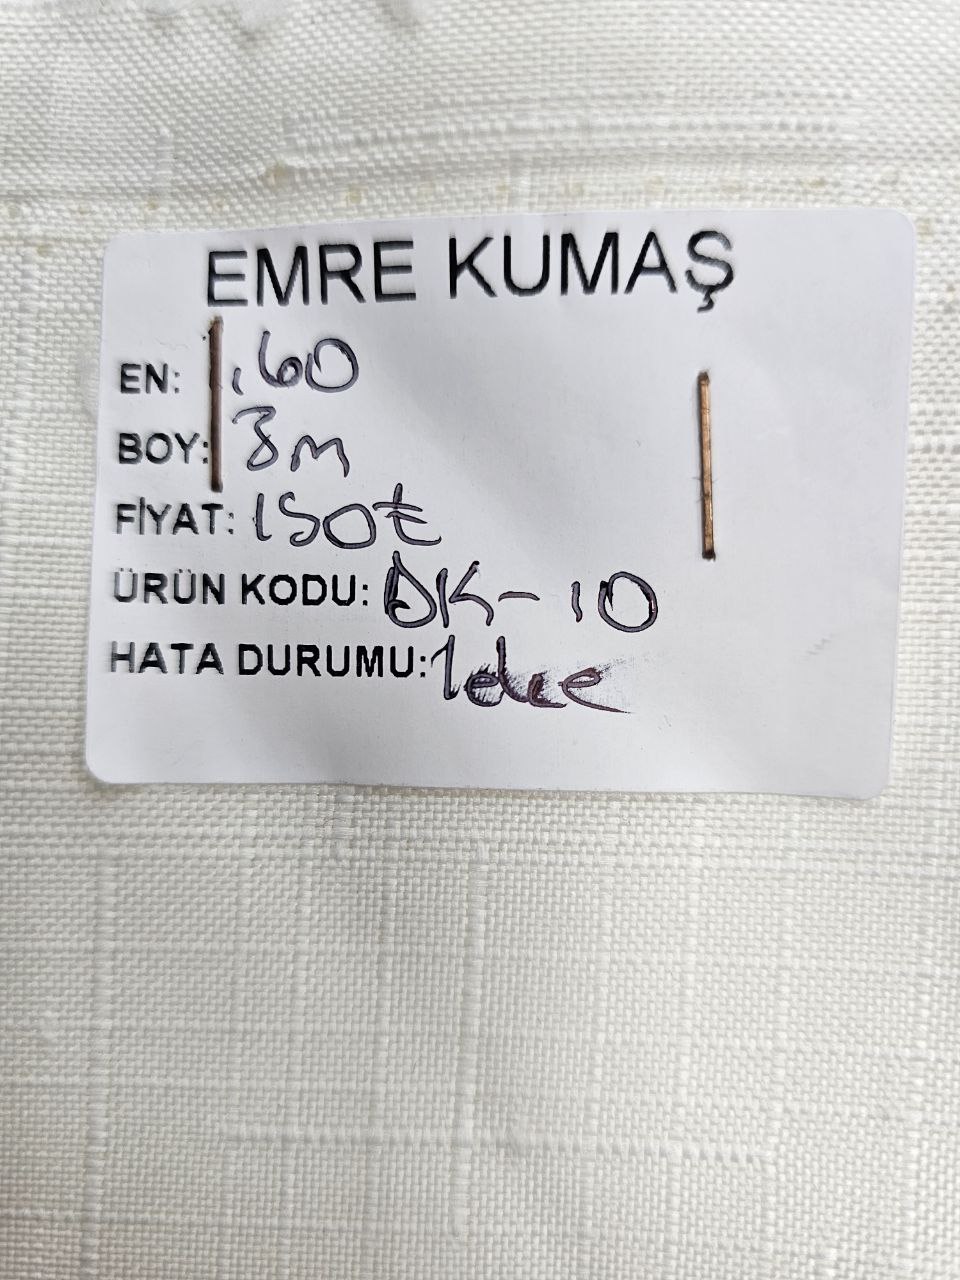 EMRE KUMAŞ
EN: 1.60
BOY: 3m
FİYAT: 150₺
ÜRÜN KODU: DK-10
HATA DURUMU: